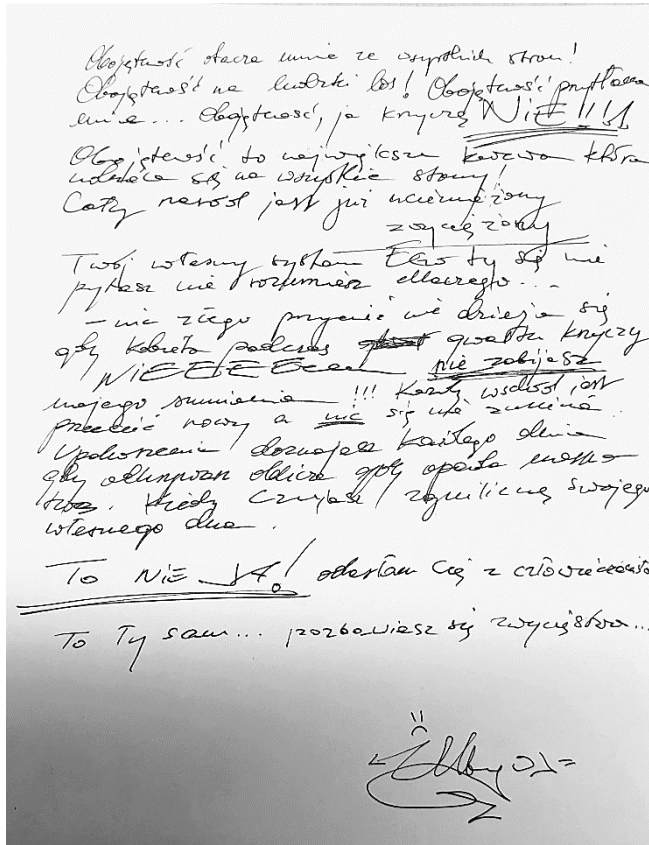 Obojętność otacza mnie ze wszystkich stron!
Obojętność na ludzki los! Obojętność przytłacza
mnie... Obojętność, ja krzyczę NiE!!!
Obojętność to największa która
się na wszystkie strony!
Cały naród jest już uciemiężony
zwyciężony
Twój własny system Ego ty się nie
pytasz nie rozumiesz dlaczego...
- nic złego przecież nie dzieje się
gdy kobieta podczas gwałtu krzyczy
NiEEEE nie zabijasz
mojego sumienia!!! Każdy wschód jest
przecież nowy a nic się nie zmienia
Upokorzenia doznajesz każdego dnia
gdy oblicze gdy opada
Kiedy czujesz zgniliznę swojego
własnego dna.
To NiE JA! Cię z człowieczeństwa
To Ty sam... pozbawiasz się zwycięstwa...